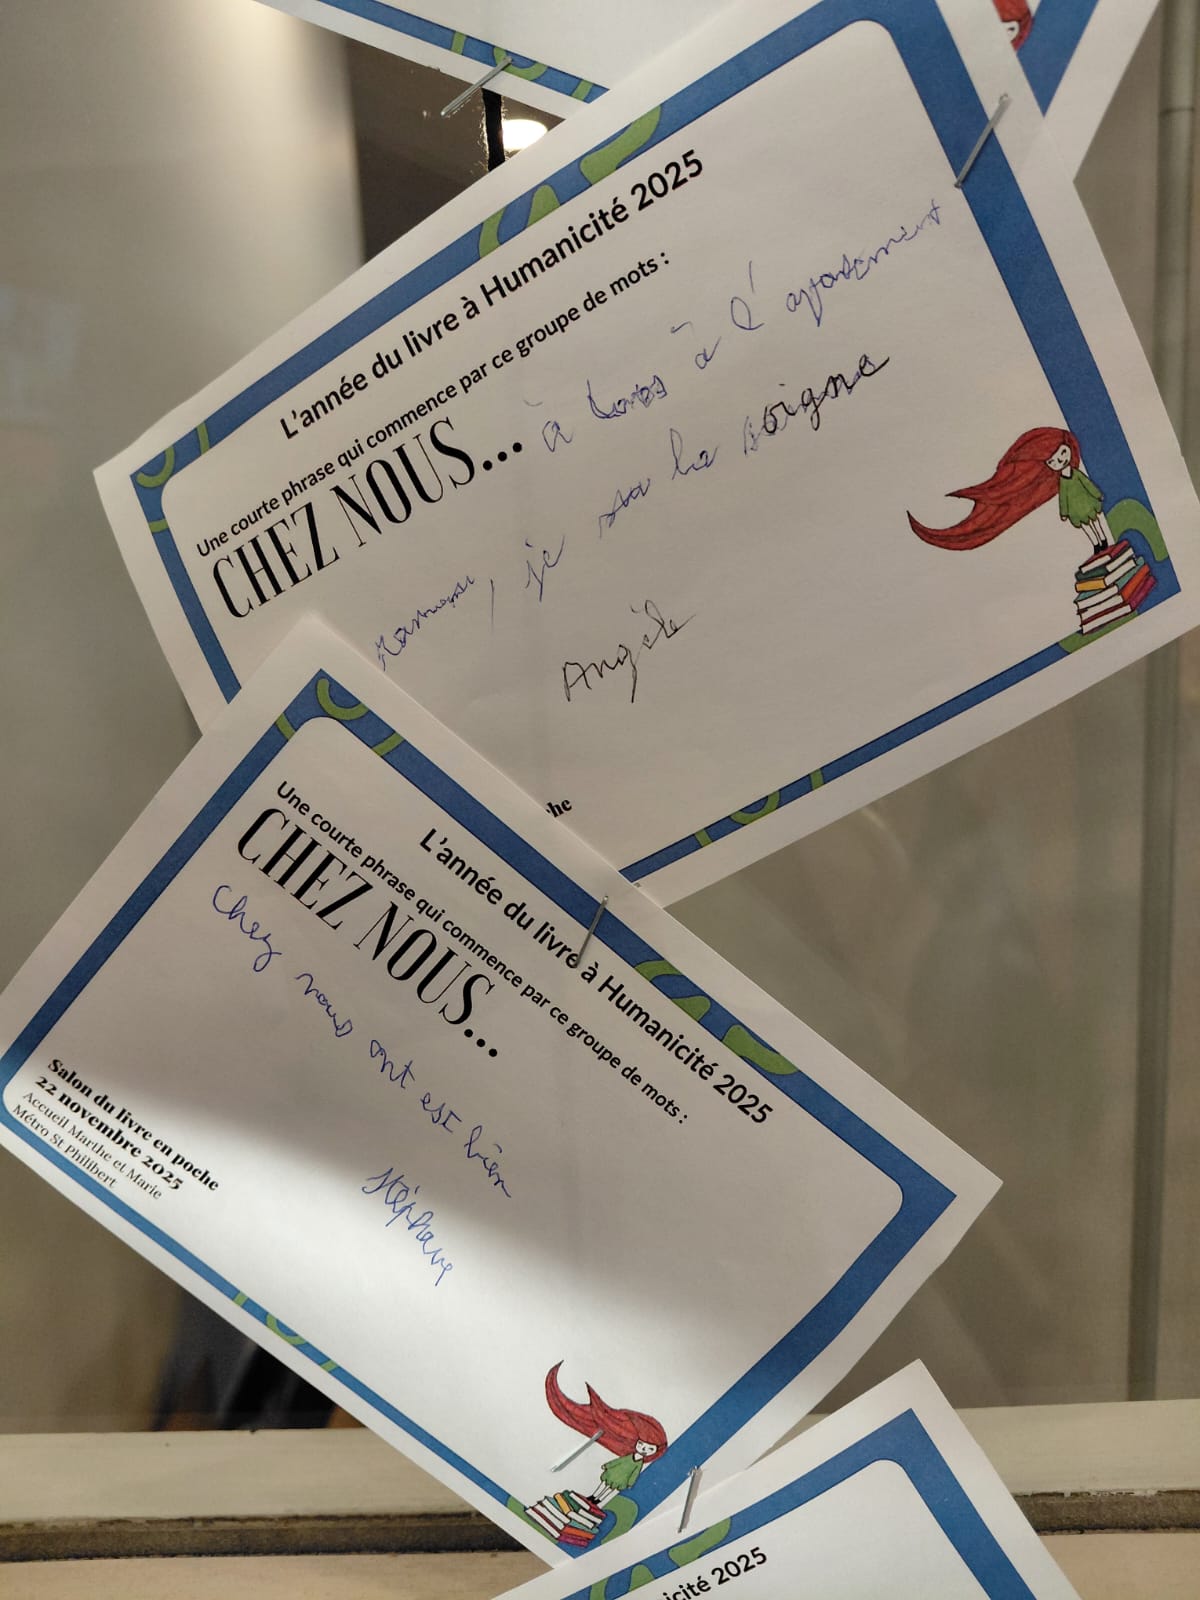 L'année du livre à Humanicité 2025
Une courte phrase qui commence par ce groupe de mots :
CHEZ NOUS... à à l'
, je la soigne
Angèle
he
L'année du livre à Humanicité 2025
Une courte phrase qui commence par ce groupe de mots :
CHEZ NOUS...
Chez nous ont est bien
Stéphane
Salon du livre en poche
22 novembre 2025
Accueil Marthe et Marie
Métro St Philibert
cité 2025